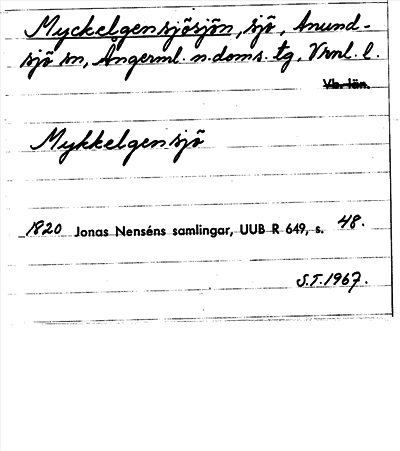 Myckelgensjösjön, sjö, Anund-
sjö sn, Ångerml. n. doms. tg, Vrnl. l.
Vb. län.
Mykkelgensjö
1820 Jonas Nenséns samlingar, UUB R 649, s. 48.
S.T. 1967.